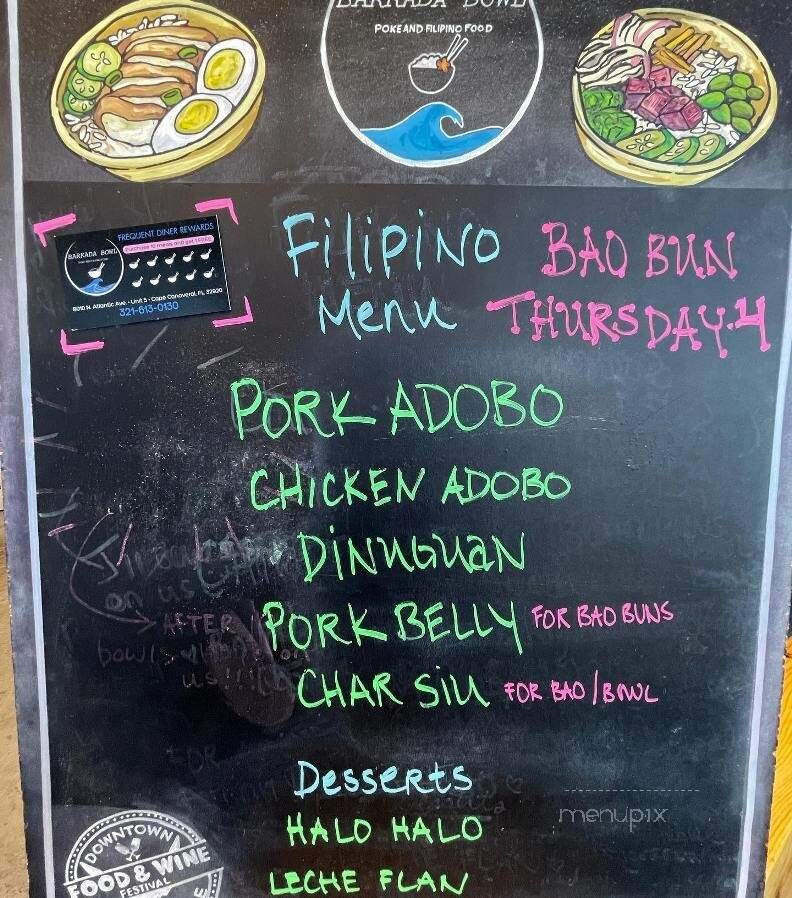 BARKADA BOWL
POKE AND FILIPINO FOOD
FREQUENT DINER REWARDS
BARKADA BOWL
8010 N. Atlantic Ave. • Unit 5 • Cape Canaveral, FL 32920
321-613-0130
FiLiPiNO
Menu
BAO BUN
THURSDAY.4
PORK ADOBO
CHICKEN ADOBO
DiNUGUAN
PORK BELLY FOR BAO BUNS
CHAR SiU FOR BAO/BOWL
on us
AFTER
us!!
FOR
Desserts
HALO HALO
LECHE FLAN
menupix
DOWNTOWN
FOOD & WINE
FESTIVAL